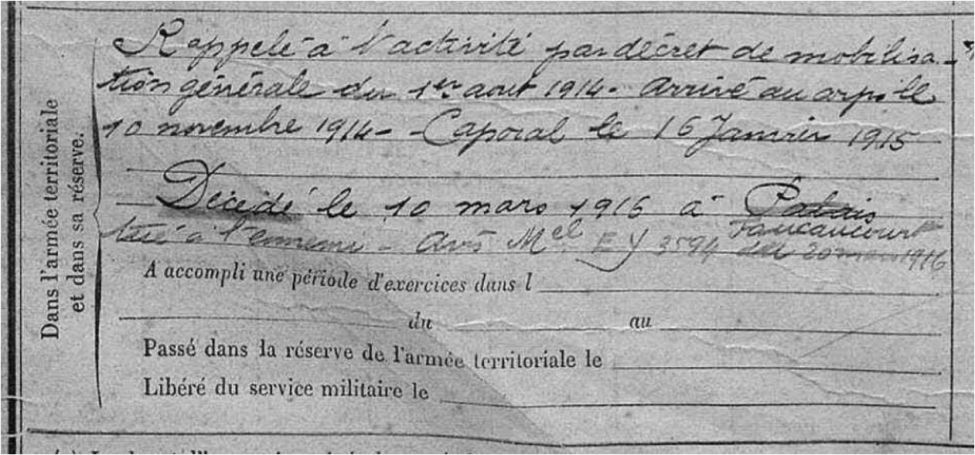 Rappelé à l'activité par décret de mobilisa-
tion générale du 1er aout 1914 - Arrivé au corps le
10 novembre 1914 - Caporal le 16 Janvier 1915
Décédé le 10 mars 1916 à Palais
Faucaucourt
tué à l'ennemi - avis Mel EY 3594 du 20 mars 1916
Dans l'armée territoriale
et dans sa réserve.
A accompli une période d'exercices dans l
du au
Passé dans la réserve de l'armée territoriale le
Libéré du service militaire le